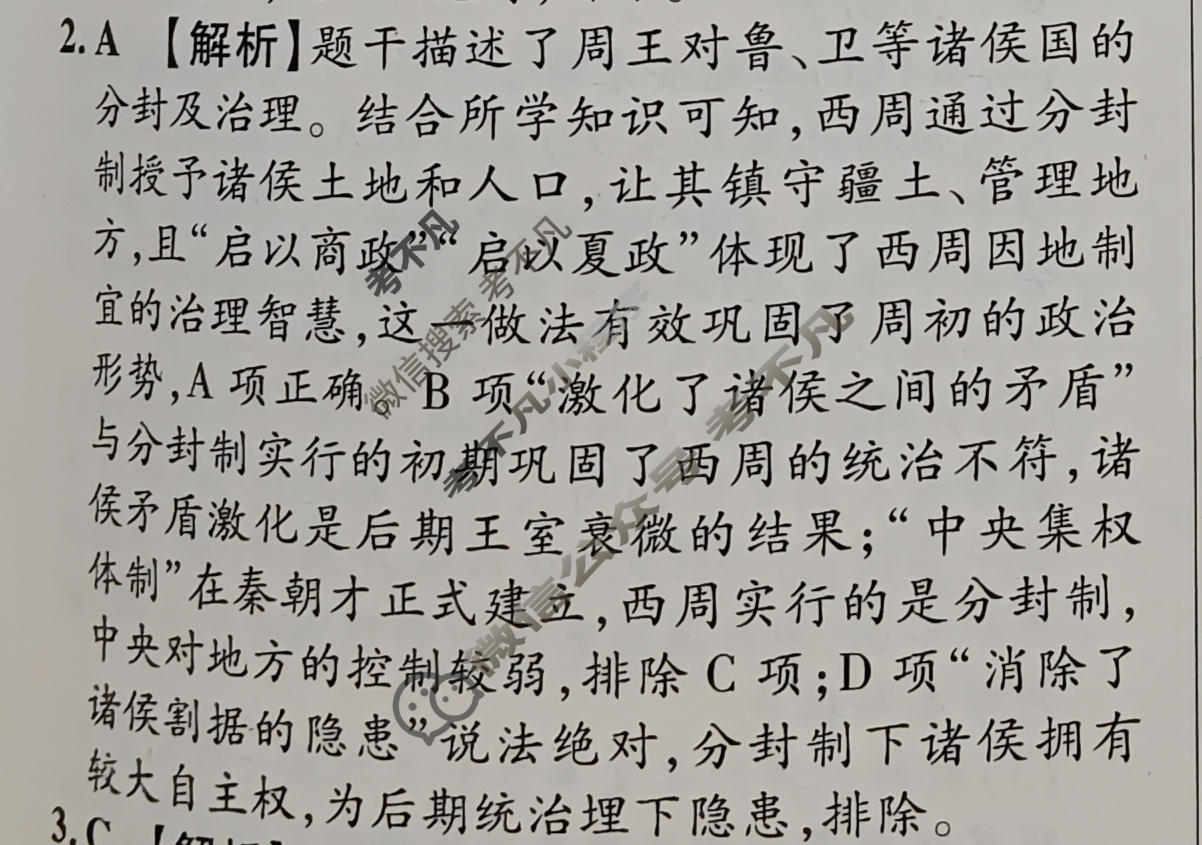 2.A 【解析】题干描述了周王对鲁、卫等诸侯国的
分封及治理。结合所学知识可知,西周通过分封
制授予诸侯土地和人口,让其镇守疆土、管理地
方,且“启以商政”“启以夏政”体现了西周因地制
宜的治理智慧,这一做法有效巩固了周初的政治
形势,A项正确。B项“激化了诸侯之间的矛盾”
与分封制实行的初期巩固了西周的统治不符,诸
侯矛盾激化是后期王室衰微的结果;“中央集权
体制”在秦朝才正式建立,西周实行的是分封制,
中央对地方的控制较弱,排除C项;D项“消除了
诸侯割据的隐患”说法绝对,分封制下诸侯拥有
较大自主权,为后期统治埋下隐患,排除。
3.C 【解析】
考不凡
微信搜索 考不凡
考不凡小程序
微信公众号 考不凡